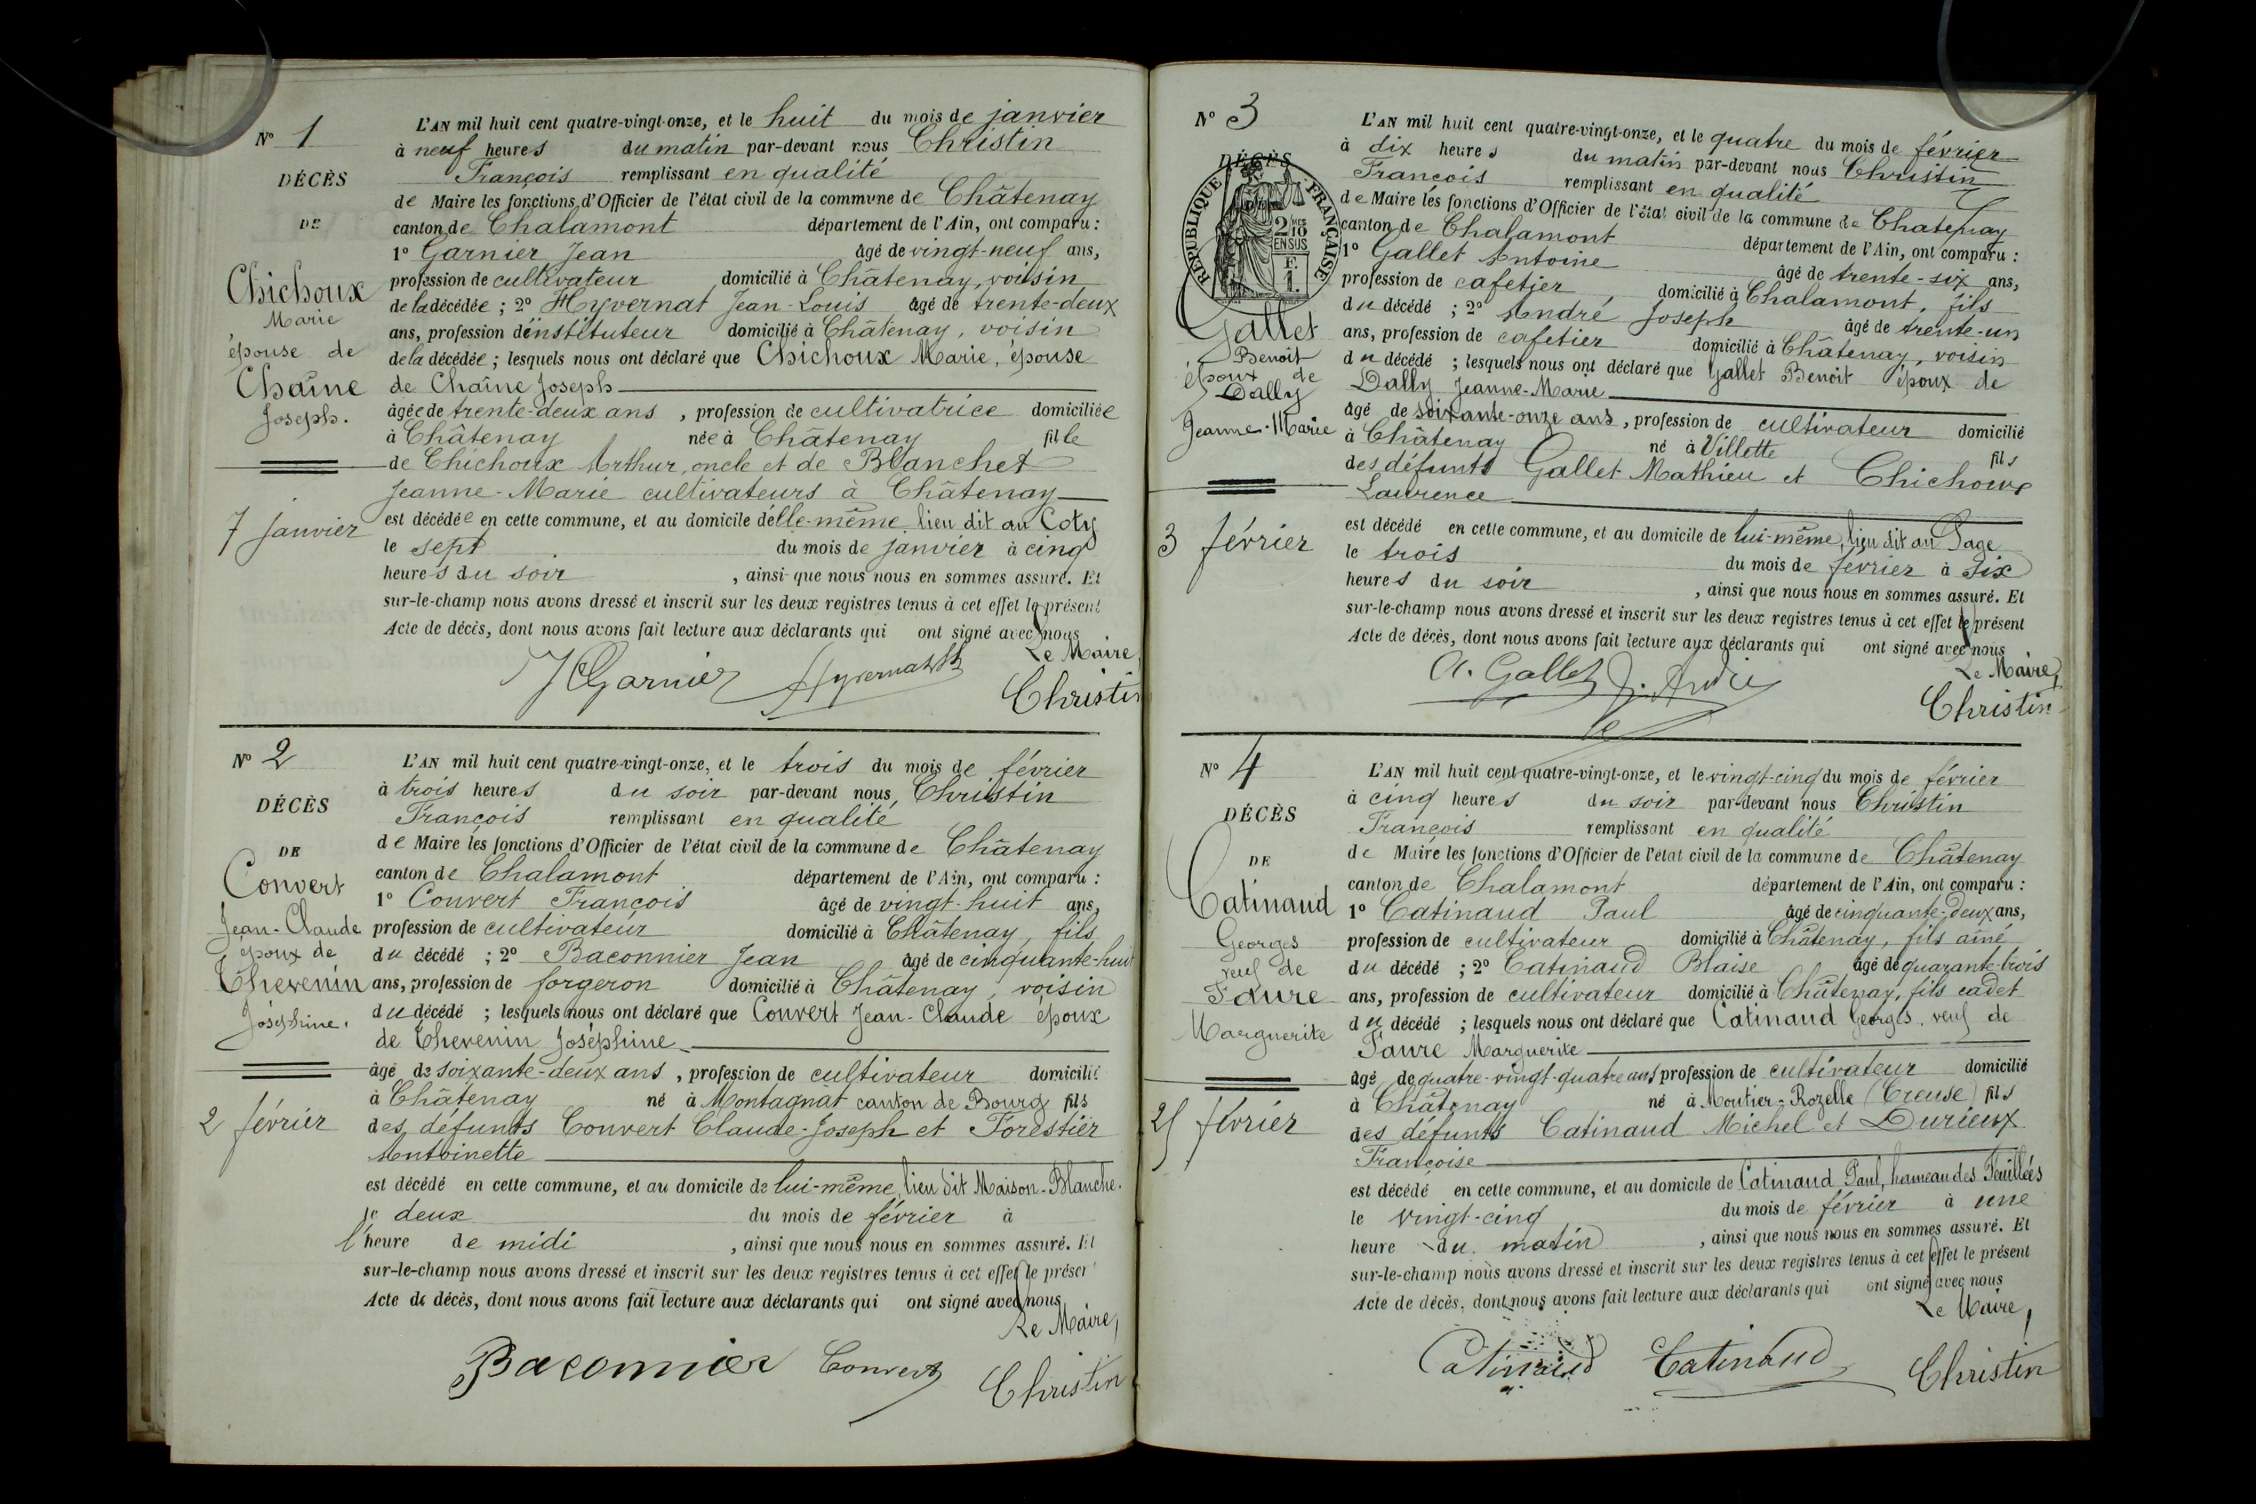 N° 1
DÉCÈS
DE
Chichoux
Marie
épouse de
Chaîne
Joseph.
7 janvier
L'AN mil huit cent quatre-vingt-onze, et le huit du mois de janvier
à neuf heures du matin par-devant nous Christin
François remplissant en qualité
de Maire les fonctions d'Officier de l'état civil de la commune de Châtenay
canton de Chalamont département de l'Ain, ont comparu :
1° Garnier Jean âgé de vingt-neuf ans,
profession de cultivateur domicilié à Châtenay, voisin
de la décédée ; 2° Hyvernat Jean-Louis âgé de trente-deux
ans, profession d'instituteur domicilié à Châtenay, voisin
de la décédée ; lesquels nous ont déclaré que Chichoux Marie, épouse
de Chaîne Joseph
âgée de trente-deux ans, profession de cultivatrice domiciliée
à Châtenay née à Châtenay fille
de Chichoux Arthur, oncle et de Blanchet
Jeanne-Marie cultivateurs à Châtenay
est décédée en cette commune, et au domicile d'elle-même lieu dit au Coty
le sept du mois de janvier à cinq
heures du soir, ainsi que nous nous en sommes assuré. Et
sur-le-champ nous avons dressé et inscrit sur les deux registres tenus à cet effet le présent
Acte de décès, dont nous avons fait lecture aux déclarants qui ont signé avec nous
Le Maire,
Garnier Hyvernat Christin
N° 2
DÉCÈS
DE
Convert
Jean-Claude
époux de
Thevenin
Joséphine.
2 février
L'AN mil huit cent quatre-vingt-onze, et le trois du mois de février
à trois heures du soir par-devant nous Christin
François remplissant en qualité
de Maire les fonctions d'Officier de l'état civil de la commune de Châtenay
canton de Chalamont département de l'Ain, ont comparu :
1° Convert François âgé de vingt-huit ans,
profession de cultivateur domicilié à Châtenay, fils
du décédé ; 2° Baconnier Jean âgé de cinquante-huit
ans, profession de forgeron domicilié à Châtenay, voisin
du décédé ; lesquels nous ont déclaré que Convert Jean-Claude époux
de Thevenin Joséphine
âgé de soixante-deux ans, profession de cultivateur domicilié
à Châtenay né à Montagnat canton de Bourg fils
des défunts Convert Claude-Joseph et Forestier
Antoinette
est décédé en cette commune, et au domicile de lui-même, lieu dit Maison-Blanche.
le deux du mois de février à
l'heure de midi, ainsi que nous nous en sommes assuré. Et
sur-le-champ nous avons dressé et inscrit sur les deux registres tenus à cet effet le présent
Acte de décès, dont nous avons fait lecture aux déclarants qui ont signé avec nous
Le Maire,
Baconnier Convert Christin
N° 3
DÉCÈS
RÉPUBLIQUE FRANÇAISE
2/10
EN SUS
F.
1.
Gallet
Benoît
époux de
Dally
Jeanne-Marie
3 février
L'AN mil huit cent quatre-vingt-onze, et le quatre du mois de février
à dix heures du matin par-devant nous Christin
François remplissant en qualité
de Maire les fonctions d'Officier de l'état civil de la commune de Chatenay
canton de Chalamont département de l'Ain, ont comparu :
1° Gallet Antoine âgé de trente-six ans,
profession de cafetier, domicilié à Chalamont, fils
du décédé ; 2° André Joseph âgé de trente-un
ans, profession de cafetier domicilié à Châtenay, voisin
du décédé ; lesquels nous ont déclaré que Gallet Benoît époux de
Dally Jeanne-Marie
âgé de soixante-onze ans, profession de cultivateur domicilié
à Châtenay né à Villette fils
des défunts Gallet Mathieu et Chichoux
Laurence
est décédé en cette commune, et au domicile de lui-même, lieu dit au Page
le trois du mois de février à six
heures du soir, ainsi que nous nous en sommes assuré. Et
sur-le-champ nous avons dressé et inscrit sur les deux registres tenus à cet effet le présent
Acte de décès, dont nous avons fait lecture aux déclarants qui ont signé avec nous
Le Maire,
A. Gallet J. André Christin
N° 4
DÉCÈS
DE
Catinaud
Georges
veuf de
Faure
Marguerite
25 février
L'AN mil huit cent quatre-vingt-onze, et le vingt-cinq du mois de février
à cinq heures du soir par-devant nous Christin
François remplissant en qualité
de Maire les fonctions d'Officier de l'état civil de la commune de Châtenay
canton de Chalamont département de l'Ain, ont comparu :
1° Catinaud Paul âgé de cinquante-deux ans,
profession de cultivateur domicilié à Châtenay, fils aîné
du décédé ; 2° Catinaud Blaise âgé de quarante-trois
ans, profession de cultivateur domicilié à Châtenay, fils cadet
du décédé ; lesquels nous ont déclaré que Catinaud Georges, veuf de
Faure Marguerite
âgé de quatre-vingt-quatre ans profession de cultivateur domicilié
à Châtenay né à Moutier-Rozelle (Creuse) fils
des défunts Catinaud Michel et Durieux
Françoise
est décédé en cette commune, et au domicile de Catinaud Paul, hameau des Feuillées
le vingt-cinq du mois de février à une
heure du matin, ainsi que nous nous en sommes assuré. Et
sur-le-champ nous avons dressé et inscrit sur les deux registres tenus à cet effet le présent
Acte de décès, dont nous avons fait lecture aux déclarants qui ont signé avec nous
Le Maire,
Catinaud Catinaud Christin